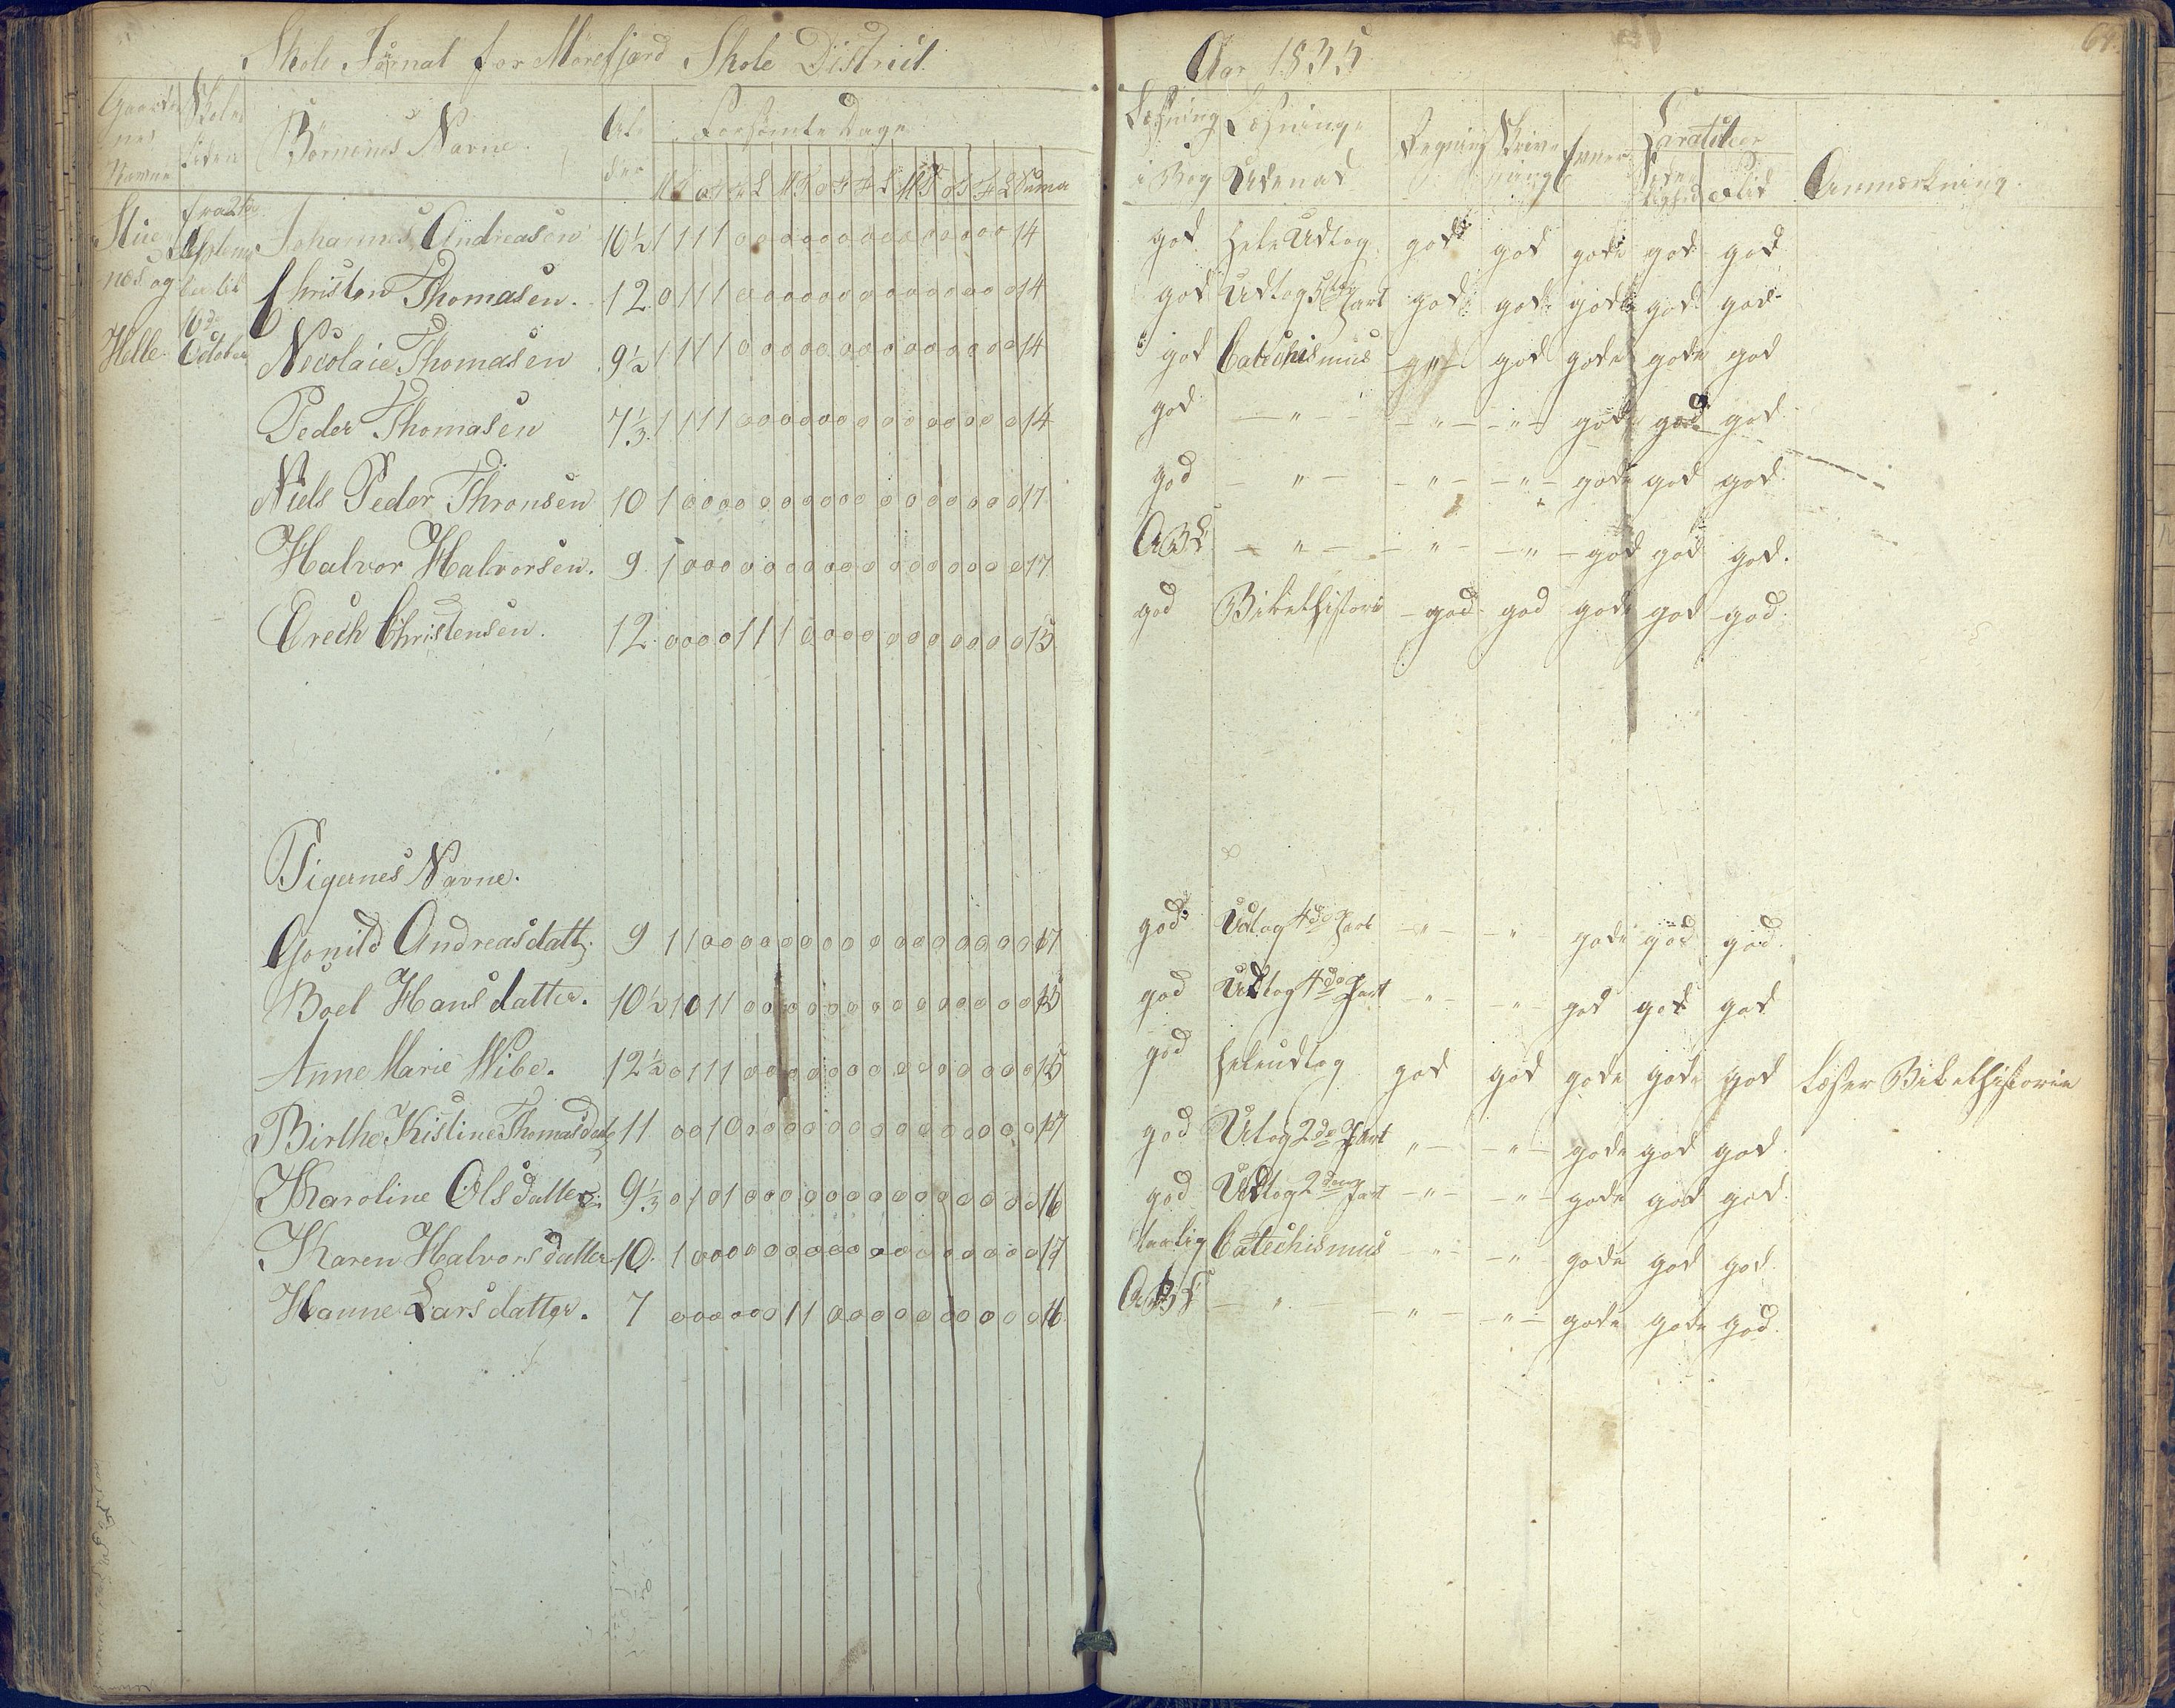 Skole Jornal for Mörefjærd Skole District
Aar 1835
64.
Gaarde
nes
Navne
Skole
tiden
Börnenes Navne
Al-
der
Forsömte Dage
M T O T F L M T O T F L M T O T F L Suma
Læsning
i Bog
Læsning
Udenad
Regning
Skriv-
ning
Evner
Caracteer
Sede-
lighed
Flid
Anmærkning.
Stue
nes og
Helle
October
Johannes Andreasen 10½ 1 1 1 1 0 0 0 0 0 0 0 0 0 0 0 0 0 0 14 god hele Udtog god god gode god god
Christen Thomasen. 12 0 1 1 1 0 0 0 0 0 0 0 0 0 0 0 0 0 0 14 god Udtog 5te Part god god gode god god
Necolaie Thomasen 9½ 1 1 1 1 0 0 0 0 0 0 0 0 0 0 0 0 0 0 14 god Catechismus god gode gode god
Peder Thomasen 7⅓ 1 1 1 1 0 0 0 0 0 0 0 0 0 0 0 0 0 0 14 god — " — — " — — " — gode god god
Niels Peder Thronsen 10 1 0 0 0 0 0 0 0 0 0 0 0 0 0 0 0 0 0 17 god — " — — " — — " — gode god god
Halvor Halvorsen. 9 1 0 0 0 0 0 0 0 0 0 0 0 0 0 0 0 0 0 17 ABC — " — — " — — " — god god god.
Erech Christensen. 12 0 0 0 0 1 1 1 0 0 0 0 0 0 0 0 0 0 0 15 god Bibelhistorie god god gode god god
Pigernes Navne.
Gonild Andreasdatt. 9 1 1 0 0 0 0 0 0 0 0 0 0 0 0 0 0 0 0 17 god Udtog 4de Part — " — — " — gode god god
Boel Hansdatter. 10½ 1 0 1 1 0 0 0 0 0 0 0 0 0 0 0 0 0 0 15 god Udtog 4de Part — " — — " — god god god
Anne Marie Wibe. 12½ 0 1 1 1 0 0 0 0 0 0 0 0 0 0 0 0 0 0 15 god heleudtog god god gode gode god Læser Bibelhistorie
Birthe Kistine Thomasdatt 11 0 0 1 0 0 0 0 0 0 0 0 0 0 0 0 0 0 0 17 god Utog 2de Part — " — — " — gode god god
Karoline Olsdatter. 9⅓ 0 1 0 1 0 0 0 0 0 0 0 0 0 0 0 0 0 0 16 god Udtog 2den Part — " — — " — gode god god
Karen Halvorsdatter 10. 1 0 0 0 0 0 0 0 0 0 0 0 0 0 0 0 0 0 17 taalig Catechismus — " — — " — gode god god
Hanne Larsdatter. 7 0 0 0 0 0 0 1 1 0 0 0 0 0 0 0 0 0 0 16 ABC — " — — " — — " — gode gode god